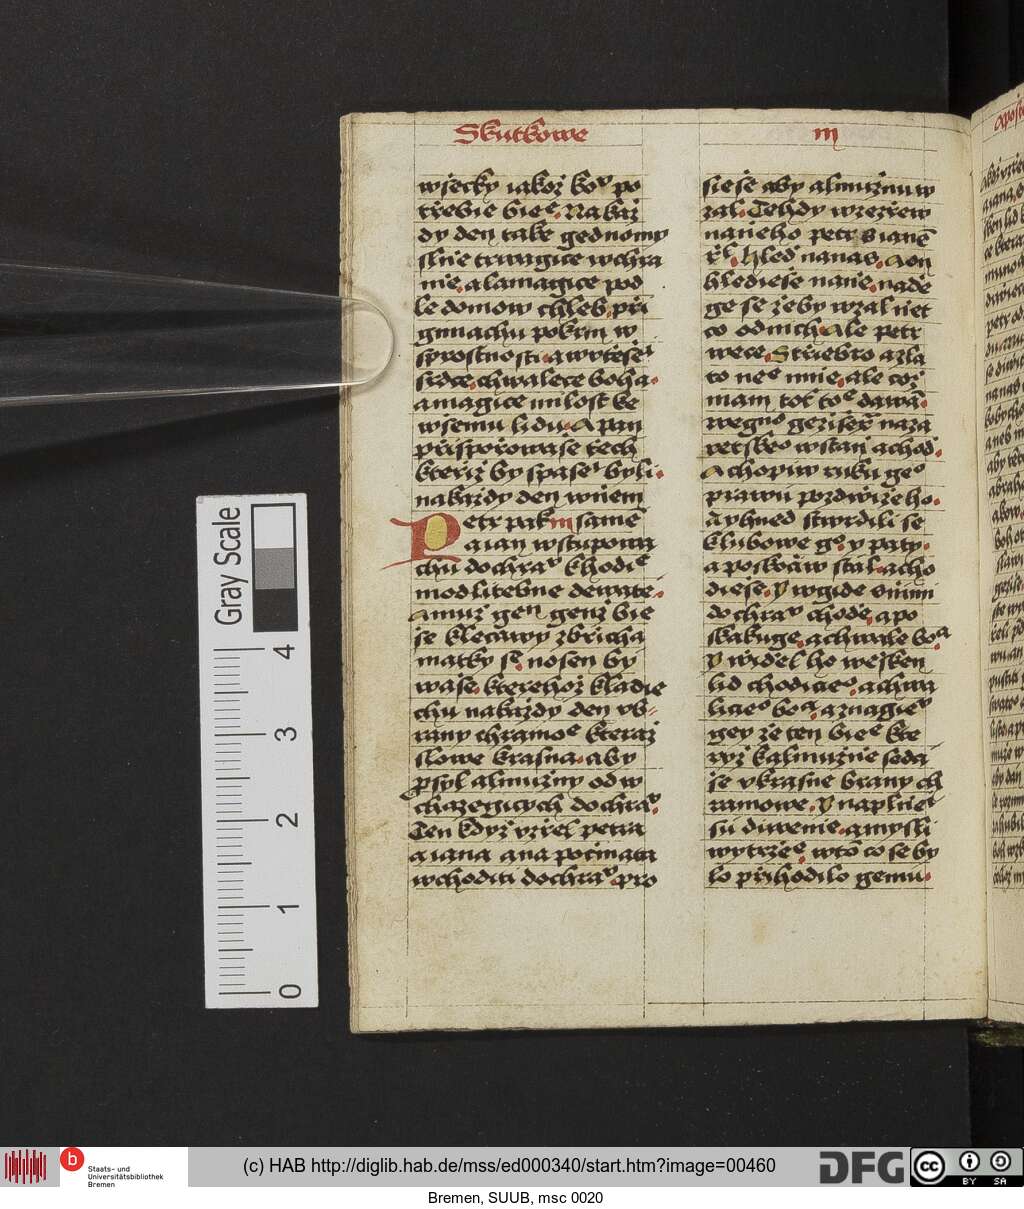 Skutkowe
wssecky iakož koᵛ po
třebie bieᵉ. Na kaž
dy den take gednomy
slnie trwagice w chra
mie. a lamagice pod
le domow chleb. při
gimachu pokrm w
sprostnosti. a w vtěšeⁱ
srdce. chwalece boha.
a magice milost ke
wsemu lidu. A pan
přisporowaše těch
kteříž by spaseⁱ byli.
na každy den w niem
Petr pak III samé
a ian wstupowa
chu do chraᵛ k hodiᵉ
modlitebne dewate.
A muž geⁿ genž bie
še klecawy z břicha
matky sᵉ. nosen by
waše. kterehož kladie
chu na každy den v b-
rany chramoᵉ kteraž
slowe krasna. aby
prosyl almužny od w
chazegicych do chraᵛ.
Ten když vzřel petra
a iana ana počinata
wchoditi do chraᵛ. pro
III
sieše aby almužnu w
zal. Tehdy wzezřew
na nieho petr s ianē
řˡ. Hled na nas. A on
hledieše na nie. nadě
ge se že by wzal niet
co od nich. Ale petr
wece. Střiebro a zla
to neᵉ mnie. ale což
mam toť toᵉ dawā.
we gmᵒ gezisě naza
retskeᵒ wstaň a chod.
A chopiw ruku geᵒ
prawú pozdwiže ho.
a yhned stwrdili se
klubowe gᵒ. y paty.
a poskočiw stal. a cho
dieše. Y wgide s nimi
do chraᵛ chodě. a po
skakuge. a chwale boᵃ.
Y widel ho wešken
lid chodicieᵒ. a chwa
licieᵒ boᵃ. a znagieᵛ
gey že ten bieᵉ kte
ryž k almužnie seda
še v krasne brany ch
ramowe. Y naplnieⁱ
sú diwenie. a mysli
wytrženie. w tō co se by
lo přihodilo gemu.
Gray Scale
4
3
2
1
0
b
Staats- und
Universitätsbibliothek
Bremen
(c) HAB http://diglib.hab.de/mss/ed000340/start.htm?image=00460
DFG
cc
BY SA
Bremen, SUUB, msc 0020